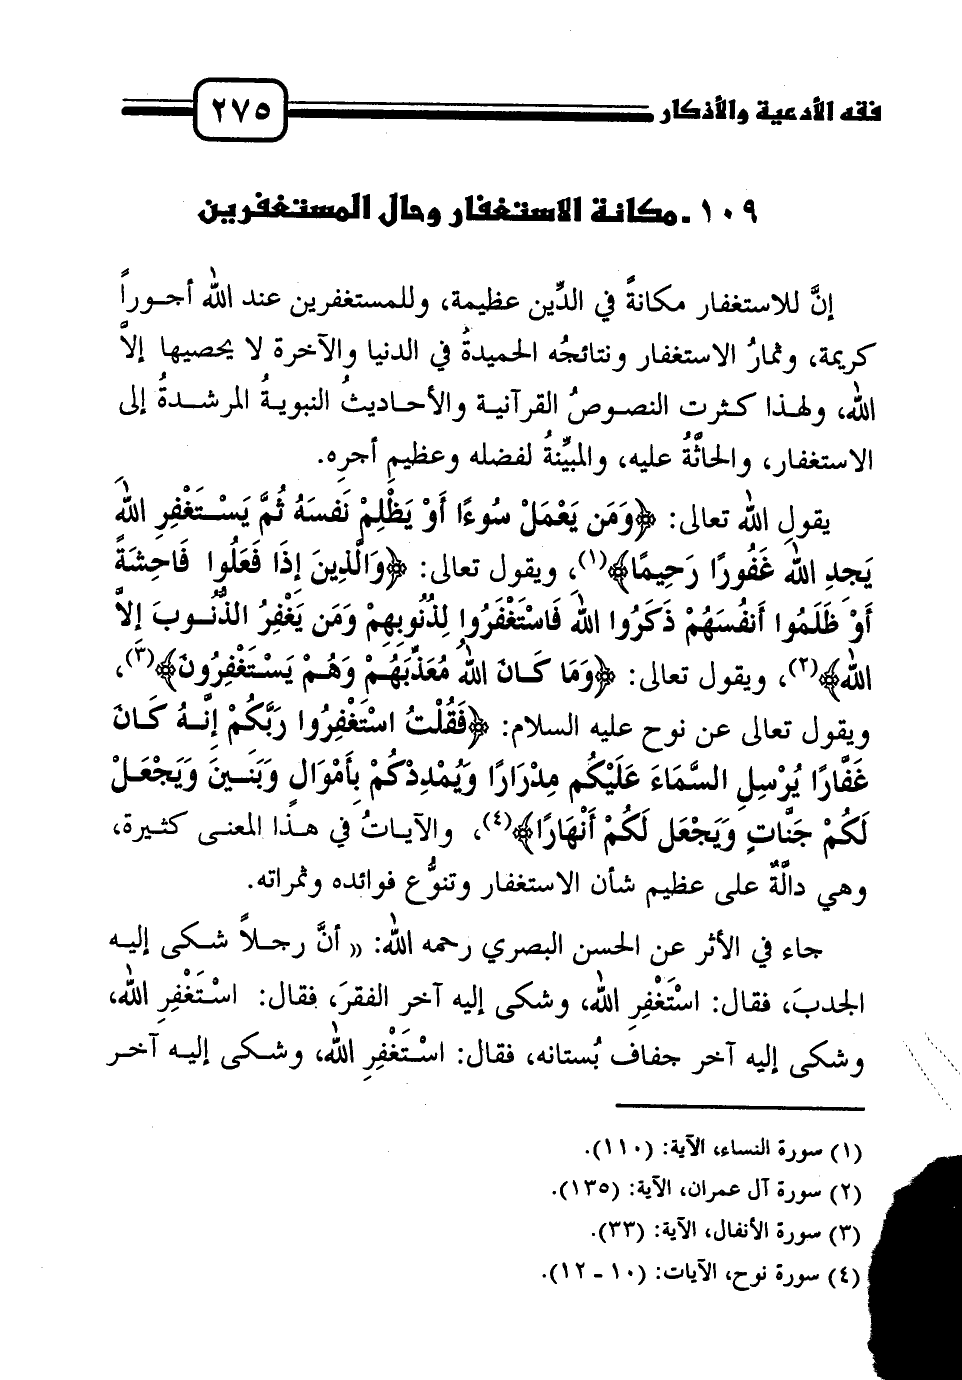 فقه الأدعية والأذكار ٢٧٥
١٠٩ ـ مكانة الاستغفار وحال المستغفرين
إنَّ للاستغفار مكانةً في الدِّين عظيمة، وللمستغفرين عند الله أجوراً
كريمة، وثمارُ الاستغفار ونتائجُه الحميدةُ في الدنيا والآخرة لا يحصيها إلاَّ
الله، ولهذا كثرت النصوصُ القرآنية والأحاديثُ النبويةُ المرشدةُ إلى
الاستغفار، والحاثَّةُ عليه، والمبيِّنةُ لفضله وعظيمِ أجرِه.
يقول الله تعالى: ﴿وَمَن يَعْمَلْ سُوءًا أَوْ يَظْلِمْ نَفسَهُ ثُمَّ يَسْتَغْفِرِ اللهَ
يَجِدِ اللهَ غَفُورًا رَحِيمًا﴾(١)، ويقول تعالى: ﴿وَالَّذِينَ إِذَا فَعَلُوا فَاحِشَةً
أَوْ ظَلَمُوا أَنفُسَهُمْ ذَكَرُوا اللهَ فَاسْتَغْفَرُوا لِذُنُوبِهِمْ وَمَن يَغْفِرُ الذُّنُوبَ إِلاَّ
اللهُ﴾(٢)، ويقول تعالى: ﴿وَمَا كَانَ اللهُ مُعَذِّبَهُمْ وَهُمْ يَسْتَغْفِرُونَ﴾(٣)،
ويقول تعالى عن نوح عليه السلام: ﴿فَقُلْتُ اسْتَغْفِرُوا رَبَّكُمْ إِنَّهُ كَانَ
غَفَّارًا يُرْسِلِ السَّمَاءَ عَلَيْكُم مِدْرَارًا وَيُمْدِدْكُمْ بِأَمْوَالٍ وَبَنِينَ وَيَجْعَلْ
لَكُمْ جَنَّاتٍ وَيَجْعَل لَكُمْ أَنْهَارًا﴾(٤)، والآياتُ في هذا المعنى كثيرة،
وهي دالَّةٌ على عظيم شأن الاستغفار وتنوُّع فوائده وثمراته.
جاء في الأثر عن الحسن البصري رحمه الله: «أنَّ رجلاً شكى إليه
الجدبَ، فقال: اسْتَغْفِرِ اللهَ، وشكى إليه آخر الفقرَ، فقال: اسْتَغْفِرِ اللهَ،
وشكى إليه آخر جفاف بُستانه، فقال: اسْتَغْفِرِ اللهَ، وشكى إليه آخر
(١) سورة النساء، الآية: (١١٠).
(٢) سورة آل عمران، الآية: (١٣٥).
(٣) سورة الأنفال، الآية: (٣٣).
(٤) سورة نوح، الآيات: (١٠ ـ ١٢).